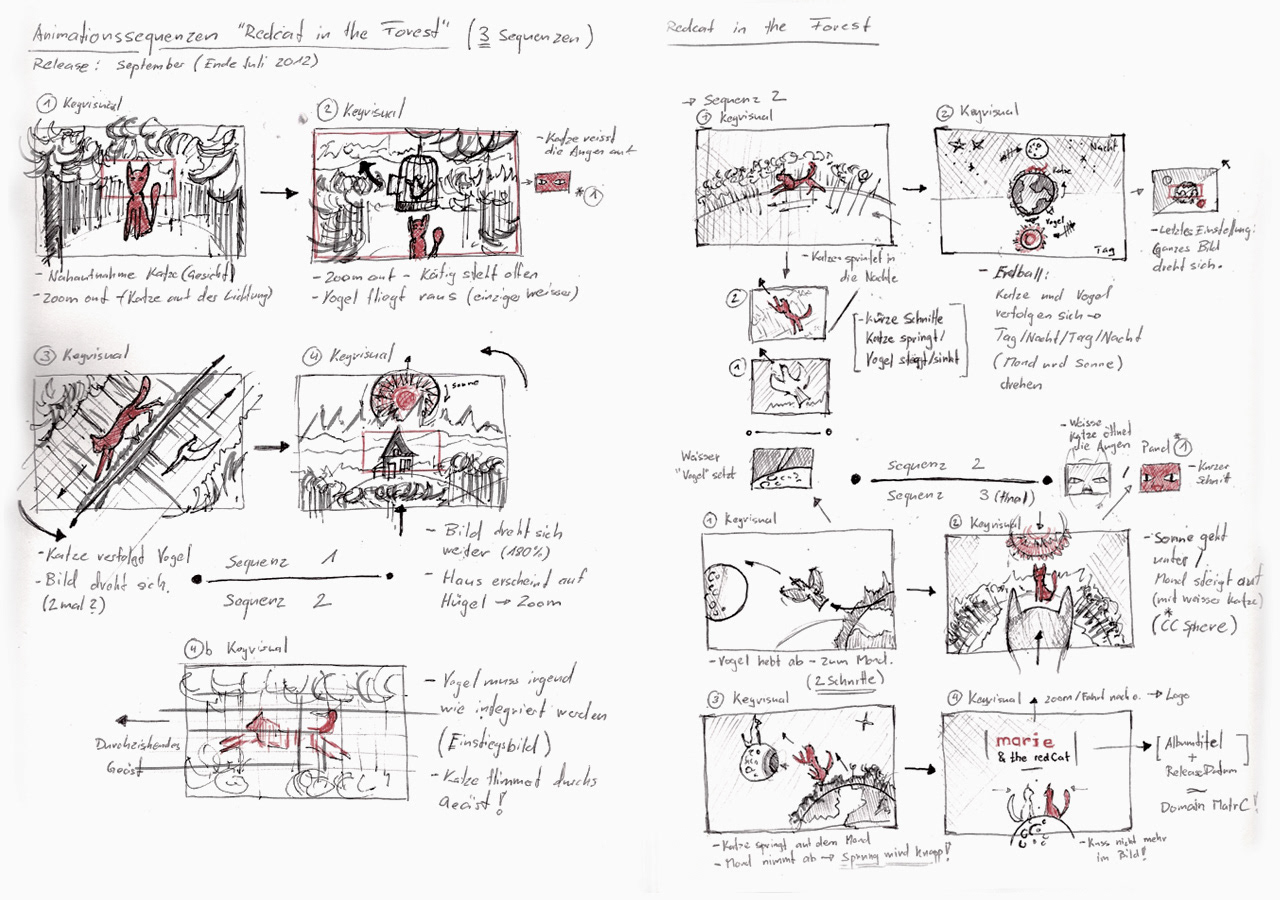 Animationssequenzen "Redcat in the Forest" (3 Sequenzen)
Release: September (Ende Juli 2012)
① Keyvisual
- Nahaufnahme Katze (Gesicht)
- Zoom out → (Katze auf der Lichtung)
② Keyvisual
- Zoom out - Käfig steht offen
- Vogel fliegt raus (einziges weisses)
- Katze reisst
die Augen auf
* ①
③ Keyvisual
- Katze verfolgt Vogel
- Bild dreht sich.
(2 mal?)
④ Keyvisual
Sonne
- Bild dreht sich
weiter (180%)
- Haus erscheint auf
Hügel → Zoom
Sequenz 1
Sequenz 2
④b Keyvisual
Durchziehendes
Geäst
- Vogel muss irgend
wie integriert werden
(Einstiegsbild)
- Katze flimmert durchs
Geäst!
Redcat in the Forest
→ Sequenz 2
① Keyvisual
- Katze sprintet in
die Nacht
② Keyvisual
Nacht
Katze
Vogel
Tag
- Erdball:
Katze und Vogel
verfolgen sich →
Tag/Nacht/Tag/Nacht
(Mond und Sonne)
drehen
- Letzte Einstellung:
Ganzes Bild
dreht sich.
②
①
- Kurze Schnitte
Katze springt/
Vogel steigt/sinkt
Weisser
"Vogel" setzt
Sequenz 2
Sequenz 3 (final)
- Weisse
Katze öffnet
die Augen
/
Panel * ①
- Kurzer
Schnitt
① Keyvisual
- Vogel hebt ab - zum Mond.
(2 Schnitte)
② Keyvisual
- Sonne geht
unter /
Mond steigt auf
(mit weisser Katze)
*
(CC Sphere)
③ Keyvisual
- Katze springt auf dem Mond
- Mond nimmt ab → Sprung wird knapp!
④ Keyvisual
Zoom/Fahrt nach o. → Logo
marie
& the redCat
Albumtitel
+
ReleaseDatum
~
Domain MatrC!
- Kuss nicht mehr
im Bild!